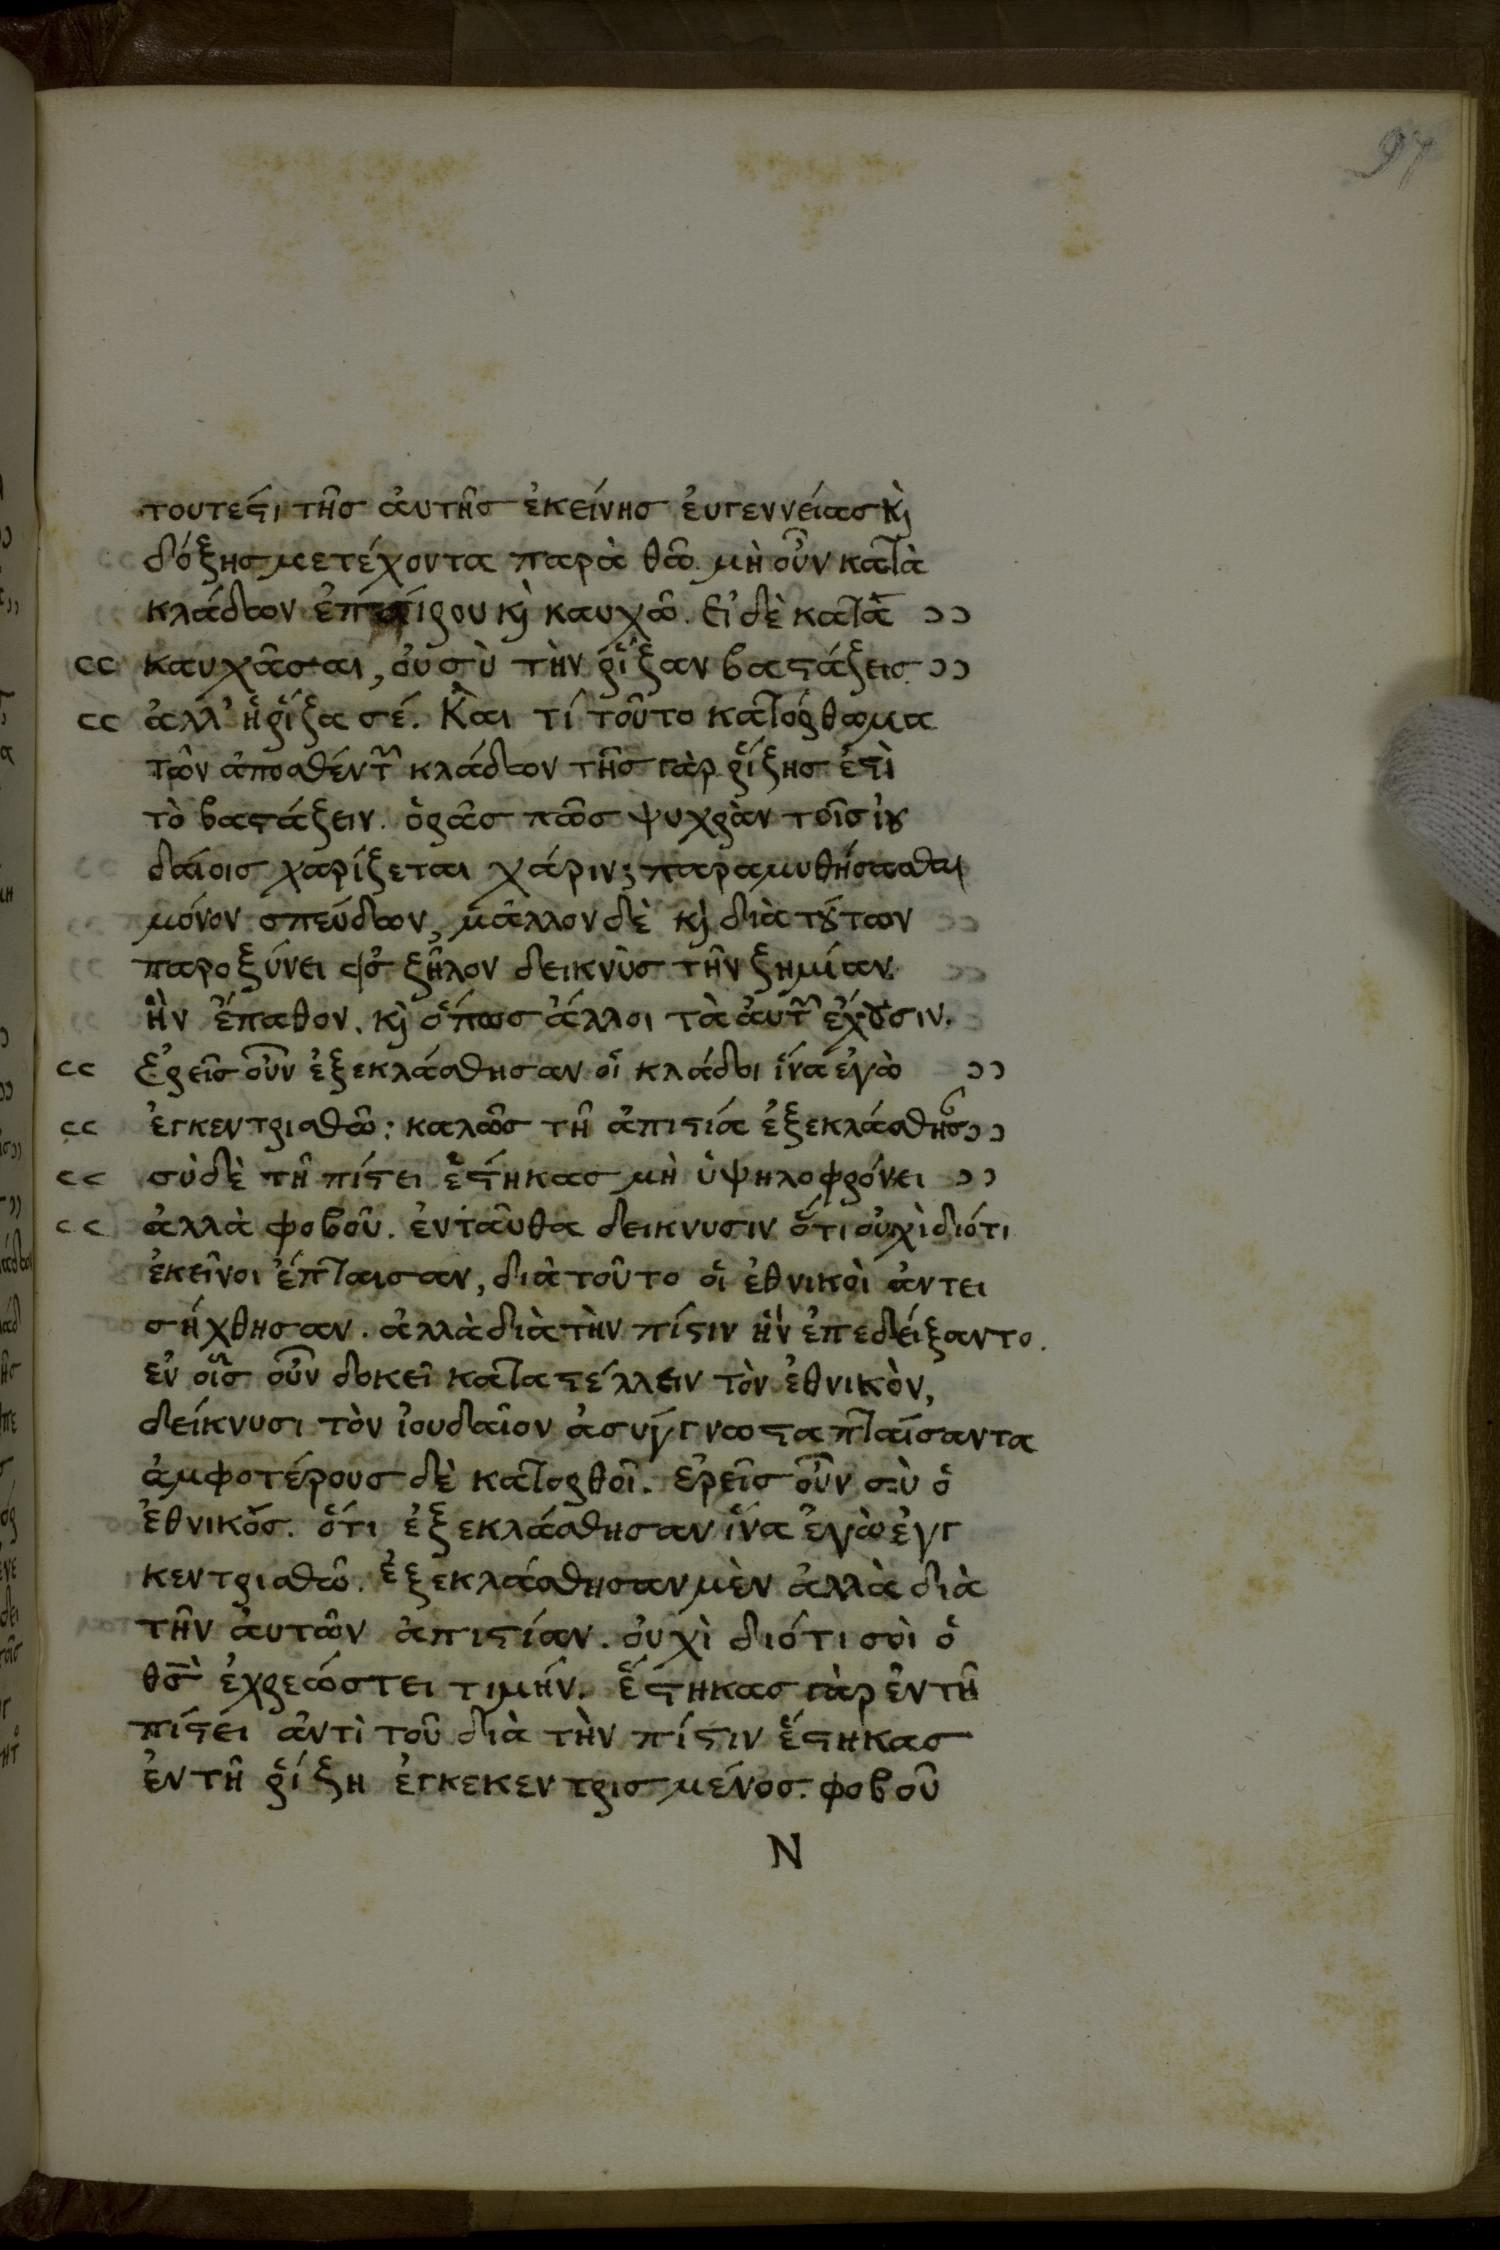 97
τουτέστι τῆς ἀυτῆς ἐκείνης ἐυγεννείας κὶ
δόξης μετέχοντα παρὰ θῶ. μὴ οὖν κατὰ
κλάδων ἐπαίρου κὶ καυχῶ. Εἰ δὲ κατὰ ””
“ καυχᾶσαι, ὀυ σὺ τὴν ῥίζαν βαστάζεις ””
“ ἀλλ' ἡ ῥίζα σέ. Και τί τοῦτο κατόρθωμα
τῶν ἀποσθέντων κλάδων τῆς γὰρ ῥίζης ἐστὶ
τὸ βαστάζειν. ὁρᾶς πῶς ψυχρὰν τοῖς ἰου
δάιοις χαρίζεται χάριν; παραμυθήσασθαι
μόνον σπεύδων, μᾶλλον δὲ κὶ διὰ τούτων
παροξύνει πρὸς ζῆλον δεικνὺς τὴν ζημίαν
ἣν ἔπαθον. κὶ ὅπως ἄλλοι τὰ ἀυτῶν ἔχουσιν.
“ Ἐρεῖς οὖν ἐξεκλάσθησαν οἱ κλάδοι ἵνα ἐγὼ ””
“ ἐγκεντρισθῶ: καλῶς τῆ ἀπιστία ἐξεκλάσθησ ””
“ σὺ δὲ τῆ πίστει ἕστηκας μὴ ὑψηλοφρόνει ””
“ ἀλλὰ φοβοῦ. ἐνταῦθα δεικνυσιν ὅτι οὐχὶ διότι
ἐκεῖνοι ἔπταισαν, διὰ τοῦτο οἱ ἐθνικοὶ ἀντει
σήχθησαν. ἀλλὰ διὰ τὴν πίστιν ἣν ἐπεδείξαντο.
ἐν οἷς οὖν δοκεῖ καταστέλλειν τὸν ἐθνικὸν,
δείκνυσι τὸν ἰουδαῖον ἀσυγγνωστα πταίσαντα
ἀμφοτέρους δὲ κατορθοῖ. ἐρεῖς οὖν σὺ ὁ
ἐθνικός. ὅτι ἐξεκλάσθησαν ἵνα ἐγὼ ἐγγ
κεντρισθῶ. ἐξεκλάσθησαν μὲν ἀλλὰ διὰ
τῆν ἀυτῶν ἀπιστίαν. ὀυχὶ διότι σοὶ ὁ
θς ἐχρεώστει τιμήν. ἕστηκας γὰρ ἐν τῆ
πίστει ἀντὶ τοῦ διὰ τὴν πίστιν ἕστηκας
ἐν τῆ ῥίζη ἐγκεκεντρισμένος. φοβοῦ
Ν